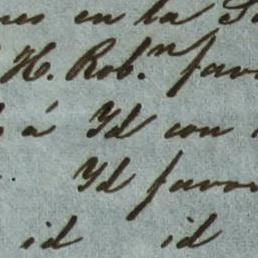 en la
H. Rob.n
á Yd con
Yd favor
id id